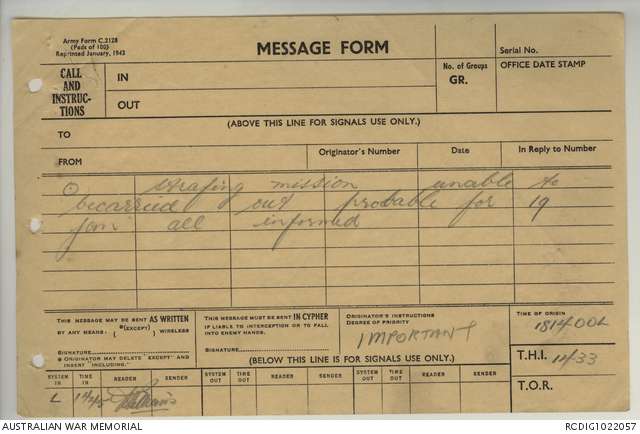 Army Form C.2128
(Pads of 100)
Reprinted January, 1942
MESSAGE FORM
Serial No.
CALL AND INSTRUC-TIONS
IN
OUT
No. of Groups
GR.
OFFICE DATE STAMP
(ABOVE THIS LINE FOR SIGNALS USE ONLY.)
TO
FROM
Originator's Number
Date
In Reply to Number
strafing mission unable to
becarried out probable for 19
jan all informed
THIS MESSAGE MAY BE SENT AS WRITTEN
BY ANY MEANS. (EXCEPT) WIRELESS
SIGNATURE
ORIGINATOR MAY DELETE "EXCEPT" AND INSERT "INCLUDING."
THIS MESSAGE MUST BE SENT IN CYPHER
IF LIABLE TO INTERCEPTION OR TO FALL INTO ENEMY HANDS.
SIGNATURE
ORIGINATOR'S INSTRUCTIONS
DEGREE OF PRIORITY
IMPORTANT
TIME OF ORIGIN
181400L
(BELOW THIS LINE IS FOR SIGNALS USE ONLY.)
T.H.I. 1433
T.O.R.
SYSTEM IN
TIME IN
READER
SENDER
SYSTEM OUT
TIME OUT
READER
SENDER
SYSTEM OUT
TIME OUT
READER
SENDER
L
AUSTRALIAN WAR MEMORIAL
RCDIG1022057